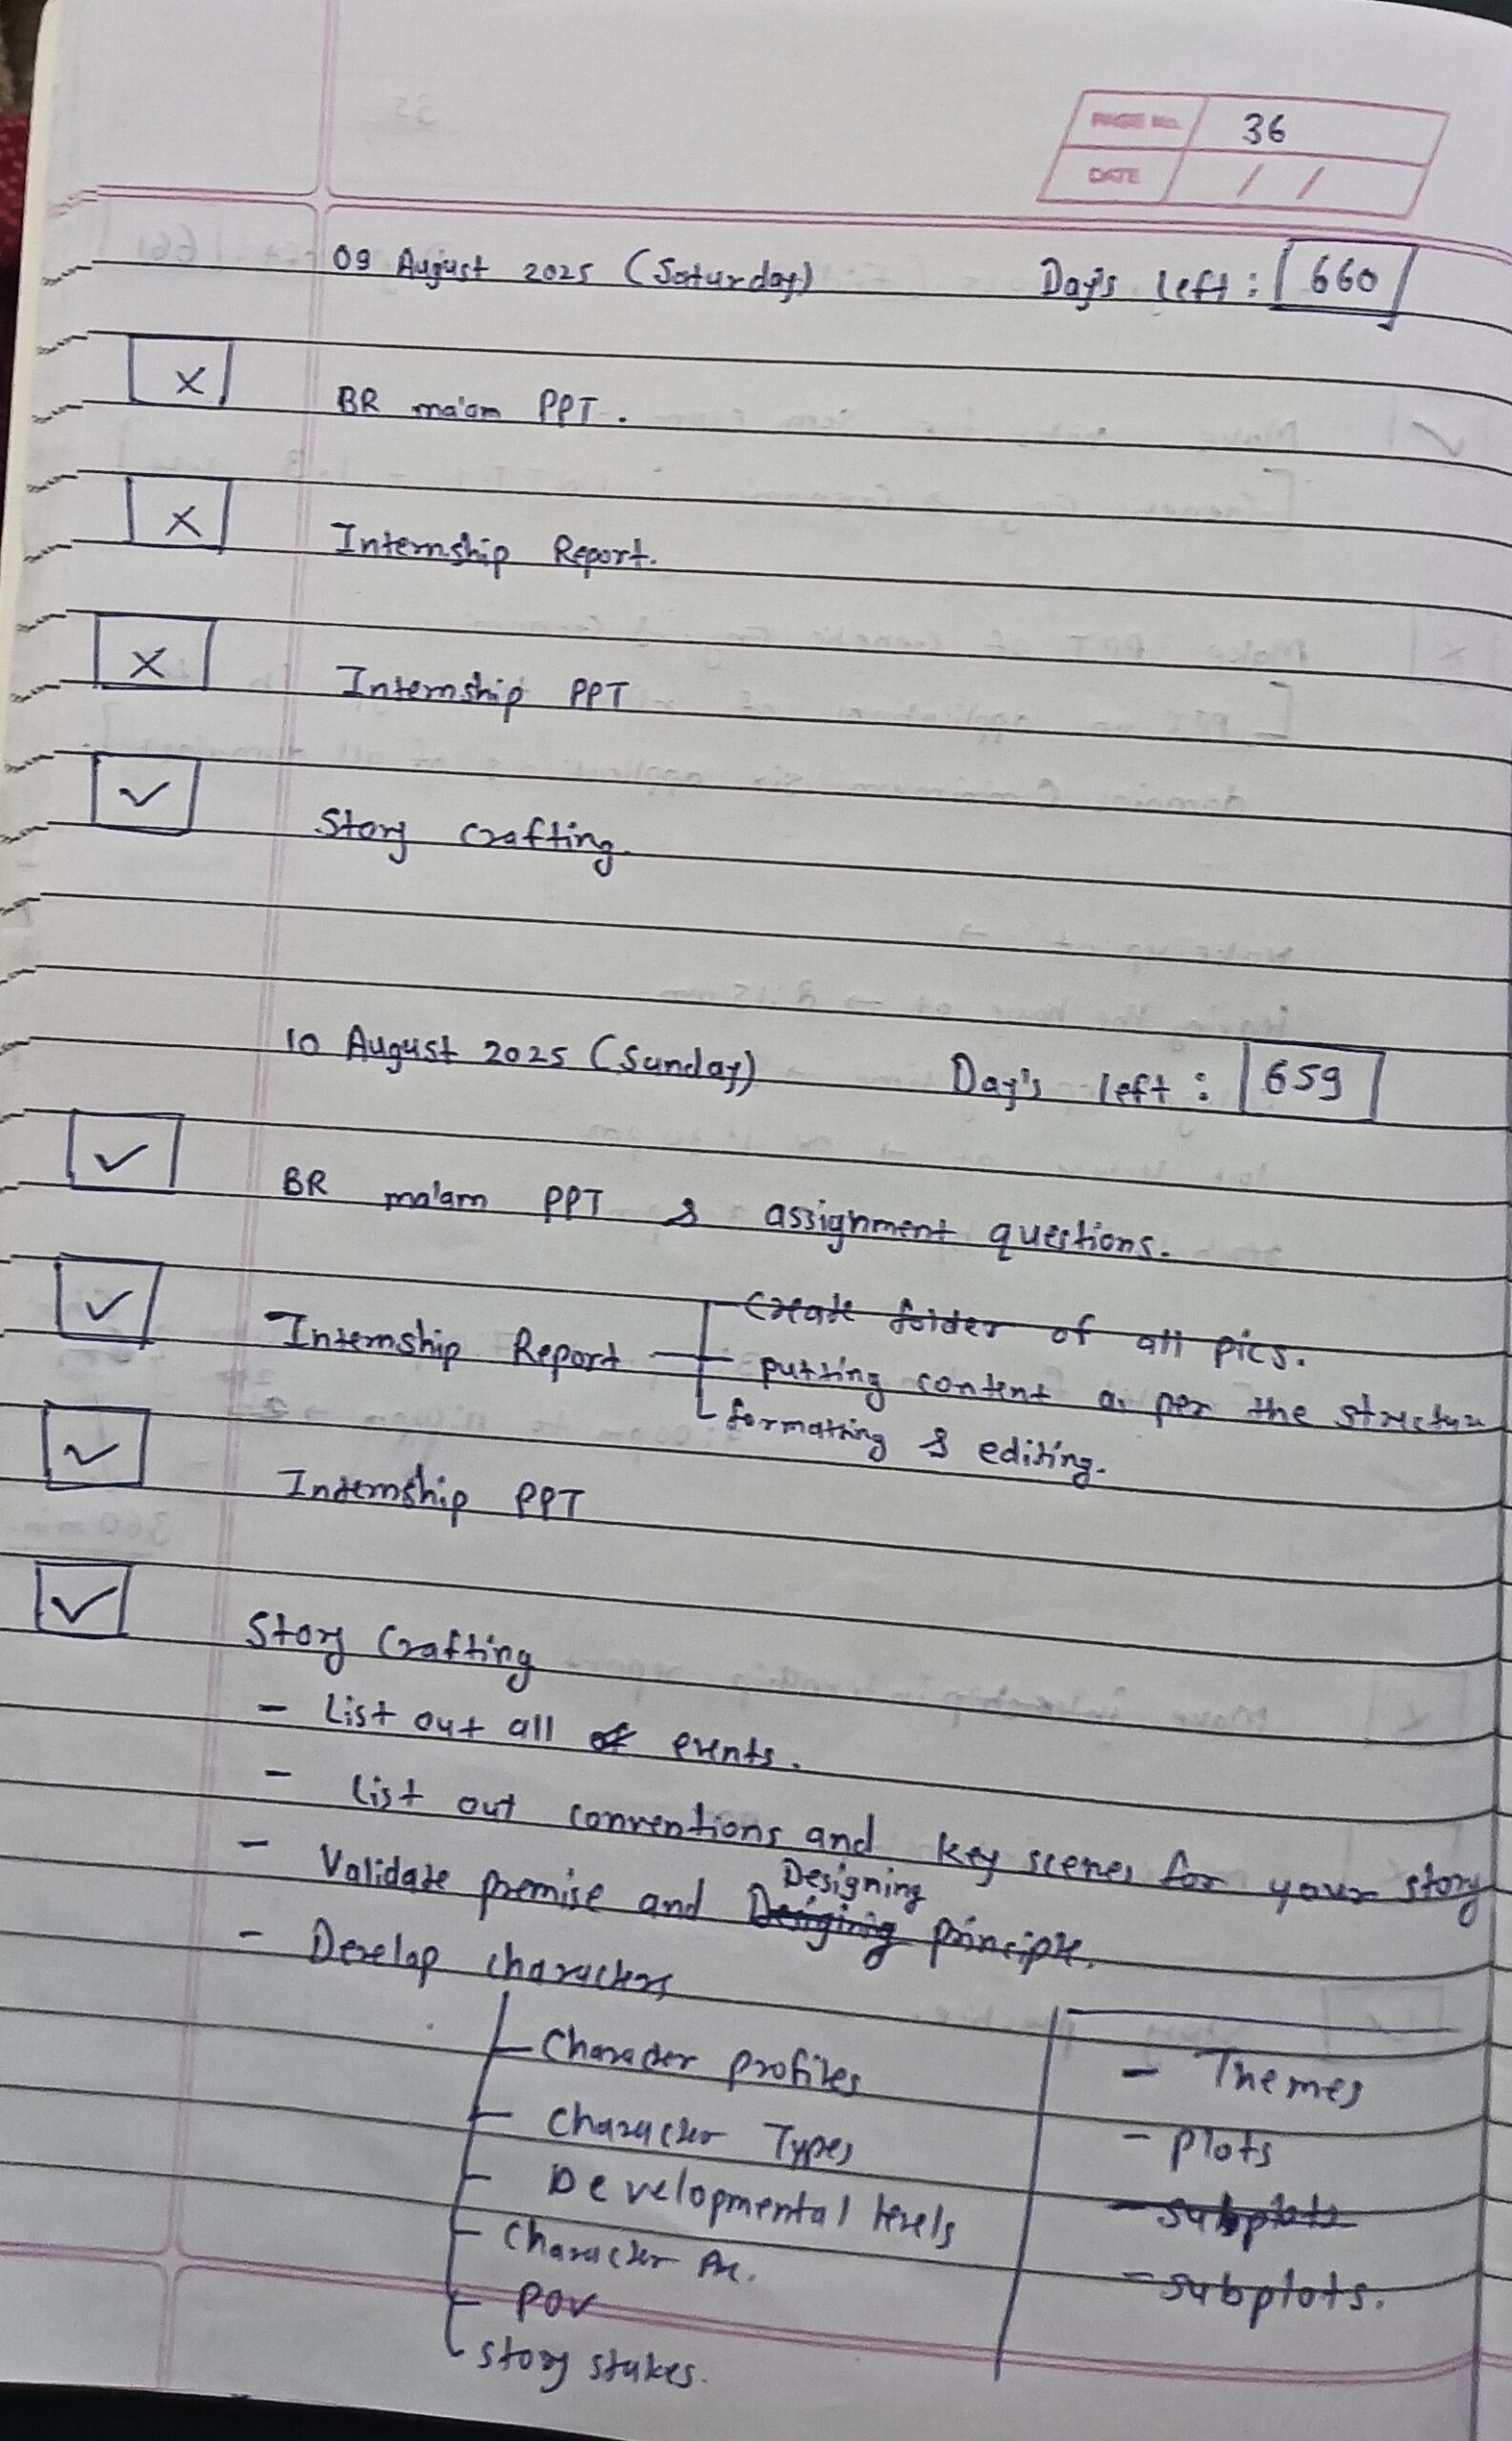 PAGE NO. 36
DATE / /
09 August 2025 (Saturday) Day's left : 660
x BR ma'am PPT.
x Internship Report.
x Internship PPT
✓ Story Crafting.
10 August 2025 (Sunday) Day's left : 659
✓ BR ma'am PPT & assignment questions.
Create folder of all pics.
✓ Internship Report putting content as per the structure
formatting & editing.
✓ Internship PPT
✓ Story Crafting
- List out all events.
- List out conventions and key scenes for your story
Designing
- Validate premise and principle.
- Develop characters
Character profiles - Themes
Character Types - plots
Developmental levels - subplots
Character Arc. - subplots.
POV
story stakes.